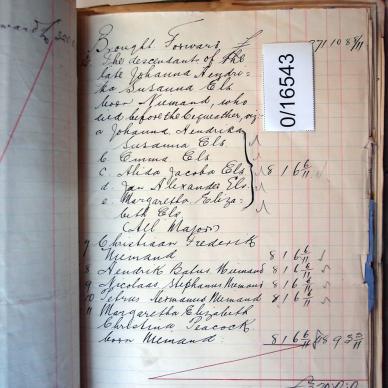 Brought Forward £ 371 10 8 8/11
The descendant of the
late Johanna Hendri-
ka Susanna Els
born Niemand, who
died before the bequeather, viz
a Johanna Hendrika
Susanna Els
b Emma Els
c. Alida Jacoba Els 8 16 6/11
d. Jan Alexander Els
e. Margaretha Eliza-
beth Els
(All Major)
7 Christiaan Frederik
Niemand 8 16 6/11
8 Hendrik Botus Niemand 8 16 6/11
9 Nicolaas Stephanus Niemand 8 16 6/11
10 Petrus Hermanus Niemand 8 16 6/11
11 Margaretha Elizabeth
Christina Peacock
born Niemand. 8 16 6/11
0/16543